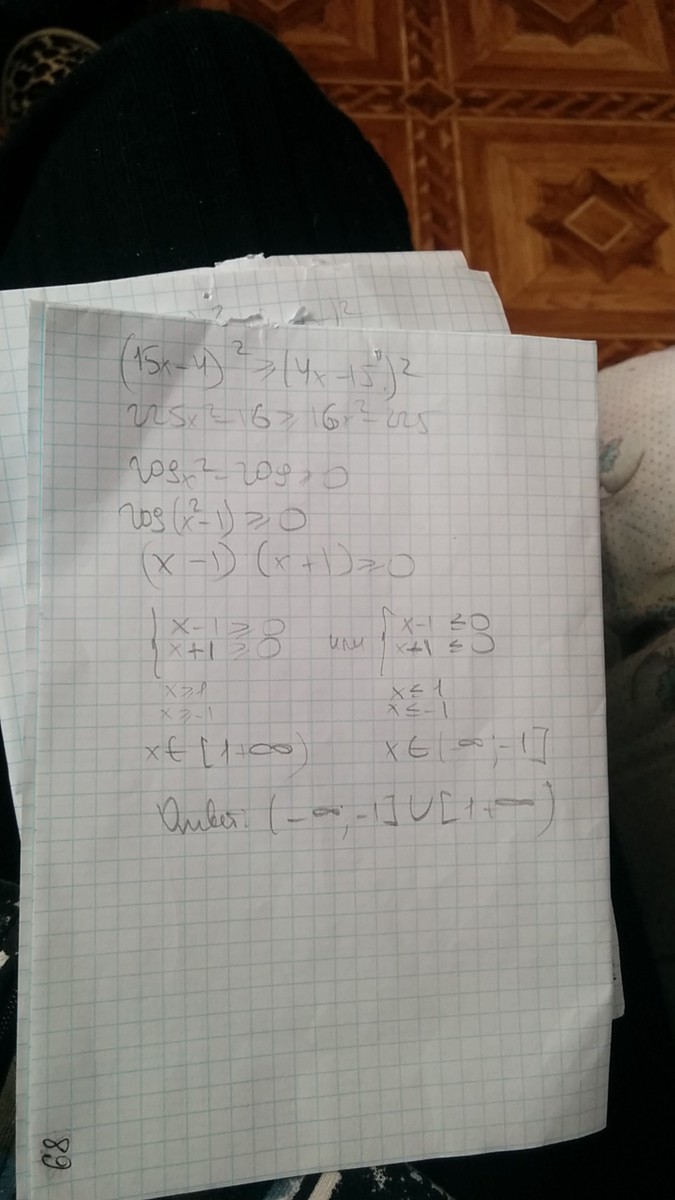 (15x-4)² ≥ (4x-15)²
225x²-16 ≥ 16x²-225
209x²-209 ≥ 0
209(x²-1) ≥ 0
(x-1) (x+1) ≥ 0
{ x-1 ≥ 0 или { x-1 ≤ 0
x+1 ≥ 0 x+1 ≤ 0
x ≥ 1 x ≤ 1
x ≥ -1 x ≤ -1
x ∈ [1+∞) x ∈ (-∞;-1]
Ответ: (-∞;-1] ∪ [1+∞)
68